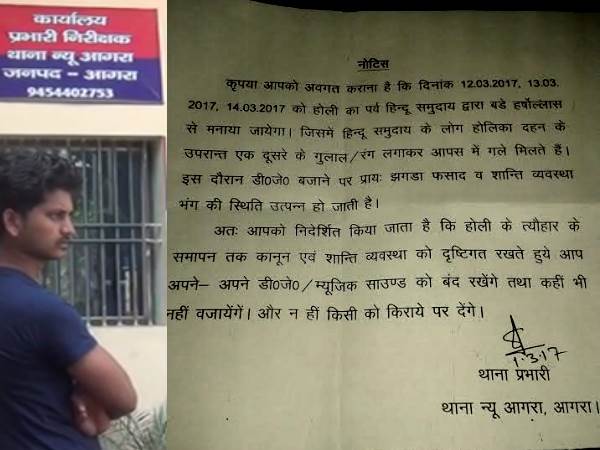 कार्यालय
प्रभारी निरीक्षक
थाना न्यू आगरा
जनपद – आगरा
9454402753
नोटिस
कृपया आपको अवगत कराना है कि दिनांक 12.03.2017, 13.03.
2017, 14.03.2017 को होली का पर्व हिन्दू समुदाय द्वारा बडे हर्षोल्लास
से मनाया जायेगा। जिसमें हिन्दू समुदाय के लोग होलिका दहन के
उपरान्त एक दूसरे के गुलाल/रंग लगाकर आपस में गले मिलते हैं।
इस दौरान डी0जे0 बजाने पर प्रायः झगडा फसाद व शान्ति व्यवस्था
भंग की स्थिति उत्पन्न हो जाती है।
अतः आपको निर्देशित किया जाता है कि होली के त्यौहार के
समापन तक कानून एवं शान्ति व्यवस्था को दृष्टिगत रखते हुये आप
अपने– अपने डी0जे0/म्यूजिक साउण्ड को बंद रखेंगे तथा कहीं भी
नहीं वजायेंगें। और न हीं किसी को किराये पर देंगे।
1.3.17
थाना प्रभारी
थाना न्यू आगरा, आगरा।